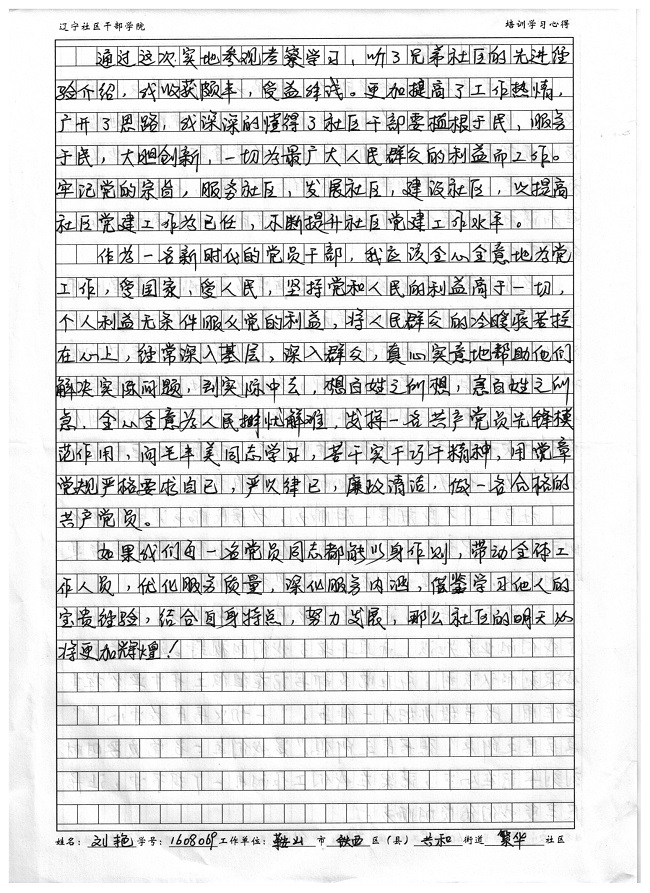 辽宁社区干部学院 培训学习心得
通过这次实地参观考察学习，听了兄弟社区的先进经
验介绍，我收获颇丰，受益终浅。更加提高了工作热情，
广开了思路，或深深的懂得了社区干部要植根于民，服务
于民，大胆创新，一切为最广大人民群众的利益而工作。
牢记党的宗旨，服务社区，发展社区，建设社区，以提高
社区党建工作为己任，不断提升社区党建工作水平。
作为一名新时代的党员干部，我应该全心全意地为党
工作，爱国家，爱人民，坚持党和人民的利益高于一切，
个人利益无条件服从党的利益，将人民群众的冷暖疾苦挂
在心上，经常深入基层，深入群众，真心实意地帮助他们
解决实际问题，到实际中去，想百姓之所想，急百姓之所
急，全心全意为人民排忧解难，发挥一名共产党员先锋模
范作用，向毛丰美同志学习，苦干实干巧干精神，用党章
党规严格要求自己，严以律己，廉政清洁，做一名合格的
共产党员。
如果我们每一名党员同志都能以身作则，带动全体工
作人员，优化服务质量，深化服务内涵，借鉴学习他人的
宝贵经验，结合自身特点，努力发展，那么社区的明天必
将更加辉煌！
姓名：刘艳 学号：1608069 工作单位：鞍山 市 铁西 区（县） 共和 街道 繁华 社区